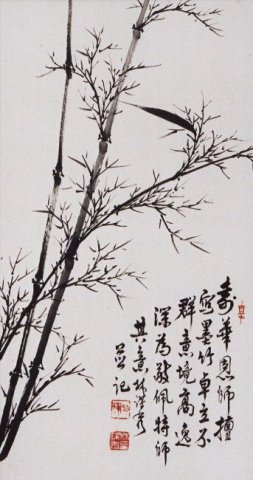 壽華恩師擅
寫墨竹卓立不
群意境高逸
深為敬佩特師
其意林洪
記